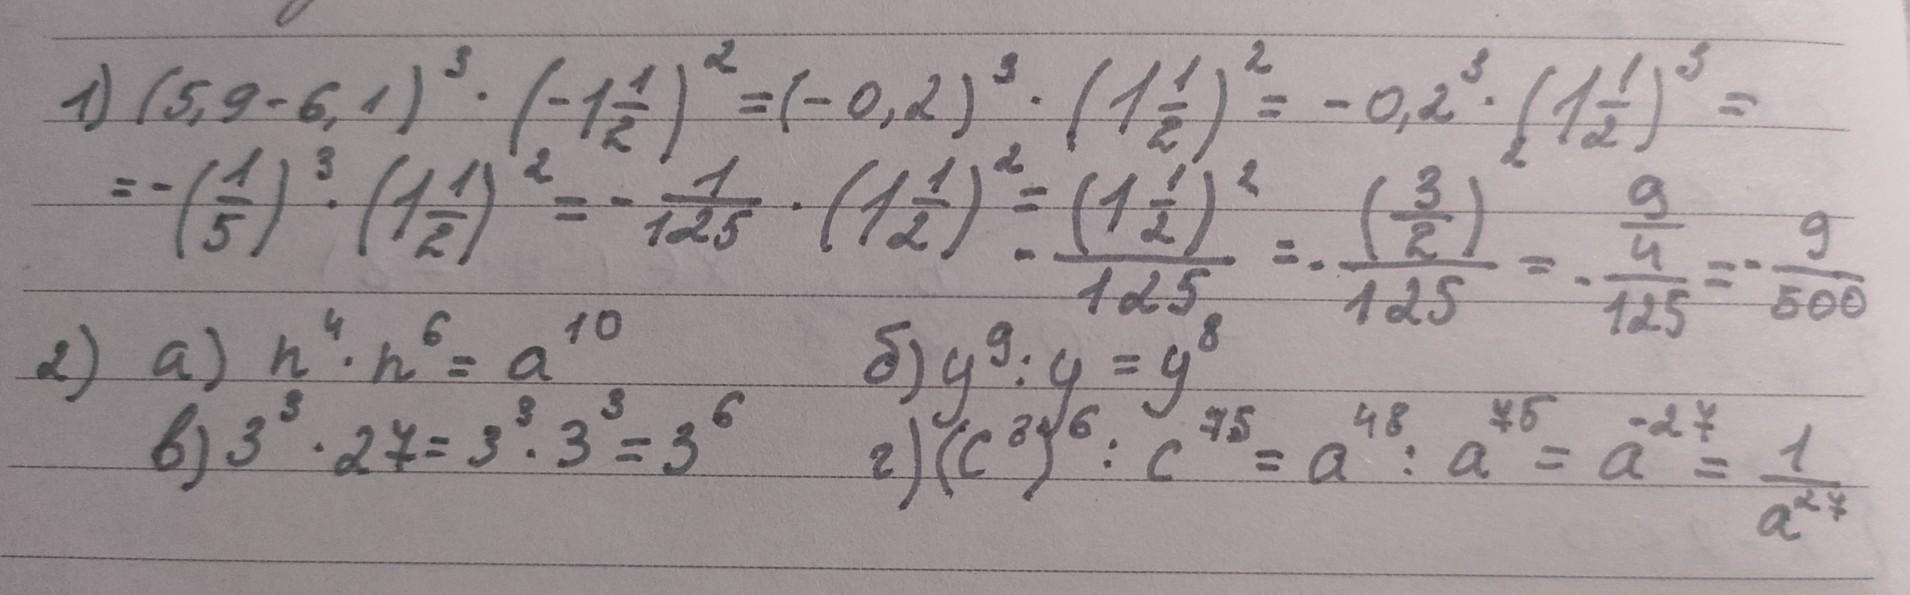 1) (5,9-6,1)³·(-1 1/2)²=(-0,2)³·(1 1/2)²=-0,2³·(1 1/2)³=
=-(1/5)³·(1 1/2)²=-1/125·(1 1/2)²=-(1 1/2)²/125=-(3/2)²/125=-9/4/125=-9/500
2) а) n⁴·n⁶=a¹⁰ б) y⁹:y=y⁸
в) 3³·27=3³·3³=3⁶ г) (c⁸)⁶:c⁷⁵=a⁴⁸:a⁷⁵=a⁻²⁷=1/a²⁷